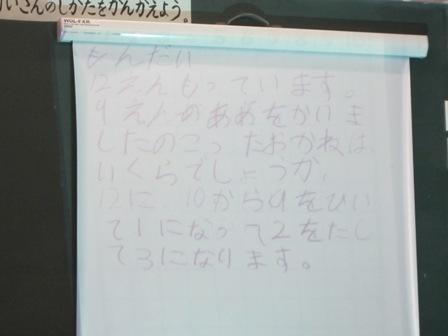 いさんのしかたをかんがえよう。
もんだい
12えんもっています。
9えんのあめをかいま
したのこったおかねは、
いくらでしょうか、
12に、10から9をひい
て1になって2をたし
て3になります。